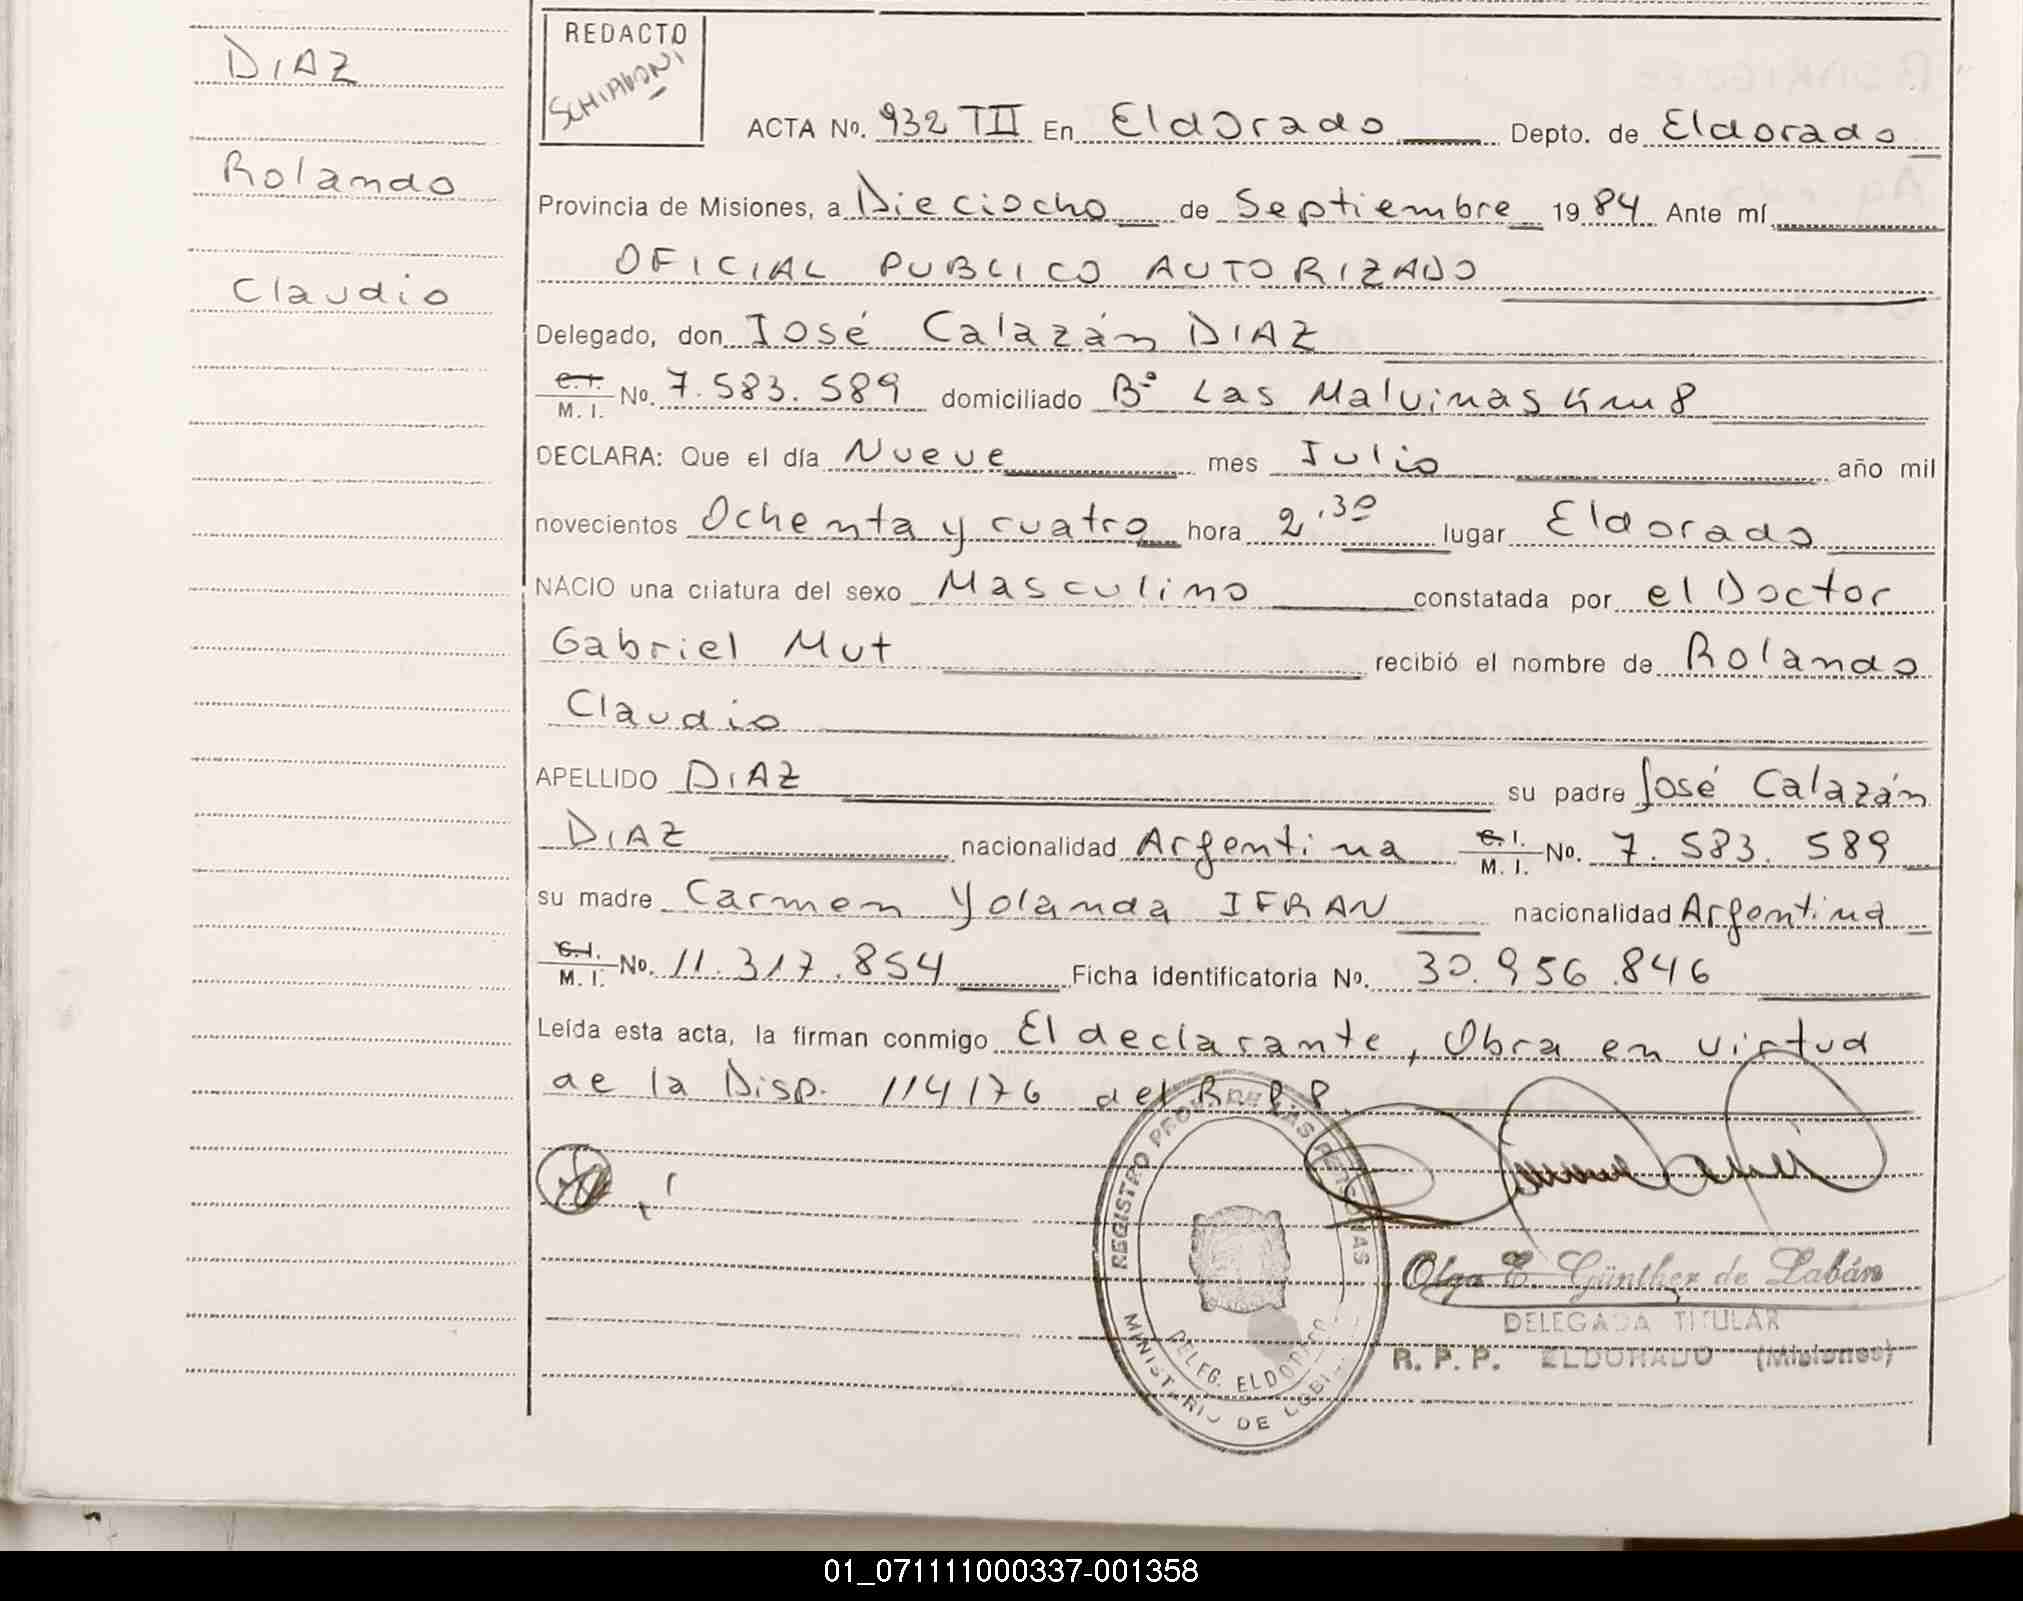 DIAZ
Rolando
Claudio
REDACTO
SCHIAVONI
ACTA No. 932 TII En Eldorado Depto. de Eldorado
Provincia de Misiones, a Dieciocho de Septiembre 1984 Ante mí
OFICIAL PUBLICO AUTORIZADO
Delegado, don José Calazán DIAZ
C.I. M. I. No. 7.583.589 domiciliado Bº Las Malvinas Km 8
DECLARA: Que el día Nueve mes Julio año mil
novecientos Ochenta y cuatro hora 2,30 lugar Eldorado
NACIO una criatura del sexo Masculino constatada por el Doctor
Gabriel Mut recibió el nombre de Rolando
Claudio
APELLIDO DIAZ su padre José Calazán
DIAZ nacionalidad Argentina C.I. M. I. No. 7.583.589
su madre Carmen Yolanda IFRAN nacionalidad Argentina
C.I. M. I. No. 11.317.854 Ficha identificatoria No. 30.956.846
Leída esta acta, la firman conmigo El declarante, Obra en virtud
de la Disp. 114/76 del R.P.P.
REGISTRO PROV. DE LAS PERSONAS
DELEG. ELDORADO
MINISTERIO DE GOBI
Olga E. Günther de Labán
DELEGADA TITULAR
R. P. P. ELDORADO (Misiones)
01_071111000337-001358